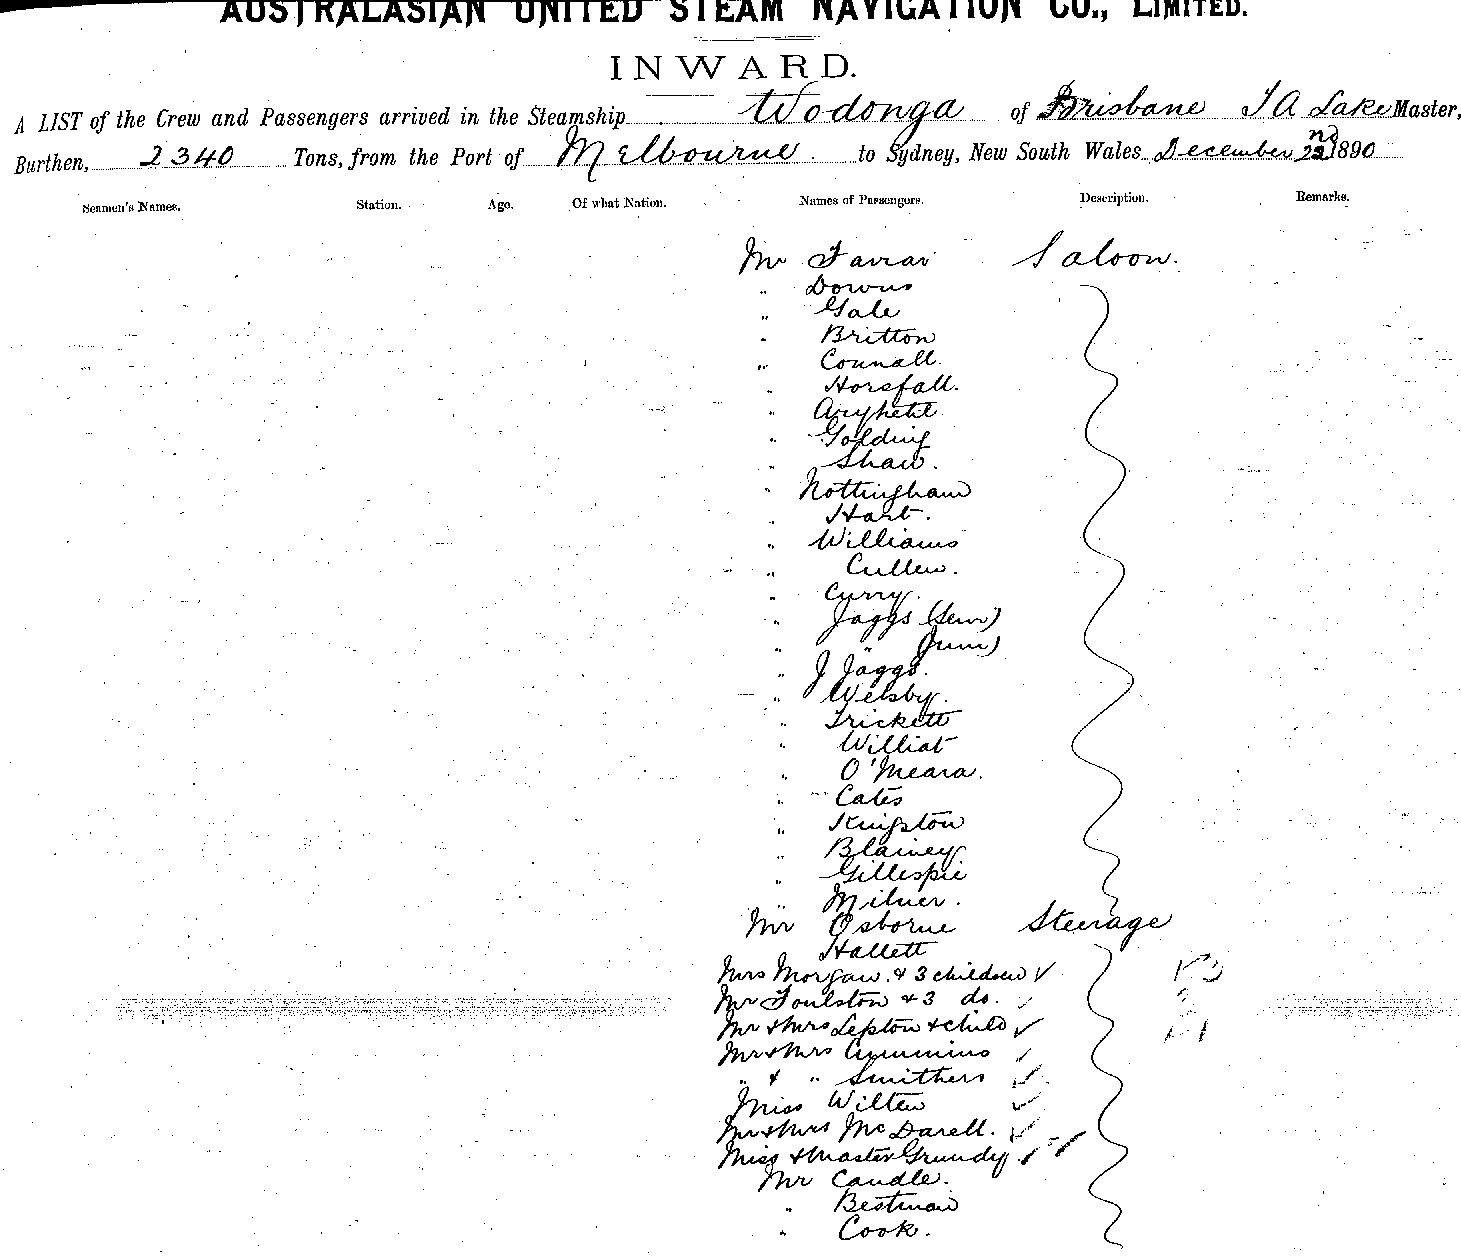 AUSTRALASIAN UNITED STEAM NAVIGATION CO., LIMITED.
INWARD.
A LIST of the Crew and Passengers arrived in the Steamship Wodonga of Brisbane J A Lake Master,
Burthen, 2340 Tons, from the Port of Melbourne to Sydney, New South Wales December 22nd 1890
Seamen's Names. Station. Age. Of what Nation. Names of Passengers. Description. Remarks.
Mr Farrar Saloon.
" Downs
" Gale
" Britton
" Connall.
" Horsfall.
"
" Golding
" Shaw.
" Nottingham
" Hart.
" Williams
" Cullen.
" Curry.
" Jaggs (Senr)
" " (Junr)
" J Jaggs.
" Welsby.
" Trickett
" Williat
" O'Meara.
" Cates
" Kingston
" Blainey
" Gillespie
" Milner.
Mr Osborne Steerage
Hallett
Mrs Morgan & 3 children ✓
Mr Foulston & 3 do. ✓
Mr & Mrs Lepton & child ✓
Mr & Mrs Cummins ✓
" & " Smithers ✓
Miss Wilten ✓
Mr & Mrs McDarell. ✓
Miss & Master Grundy ✓
Mr Caudle.
" Bestman
" Cook.